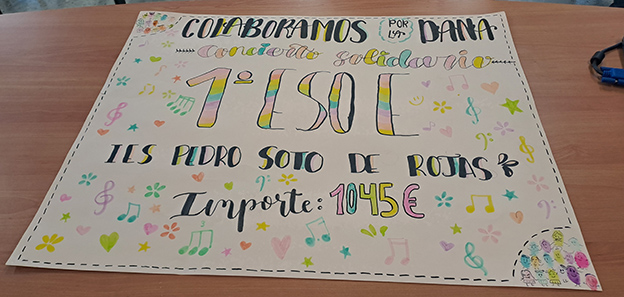 COLABORAMOS POR LA DANA
Concierto solidario
1º ESO E
IES PEDRO SOTO DE ROJAS
Importe: 1045 €